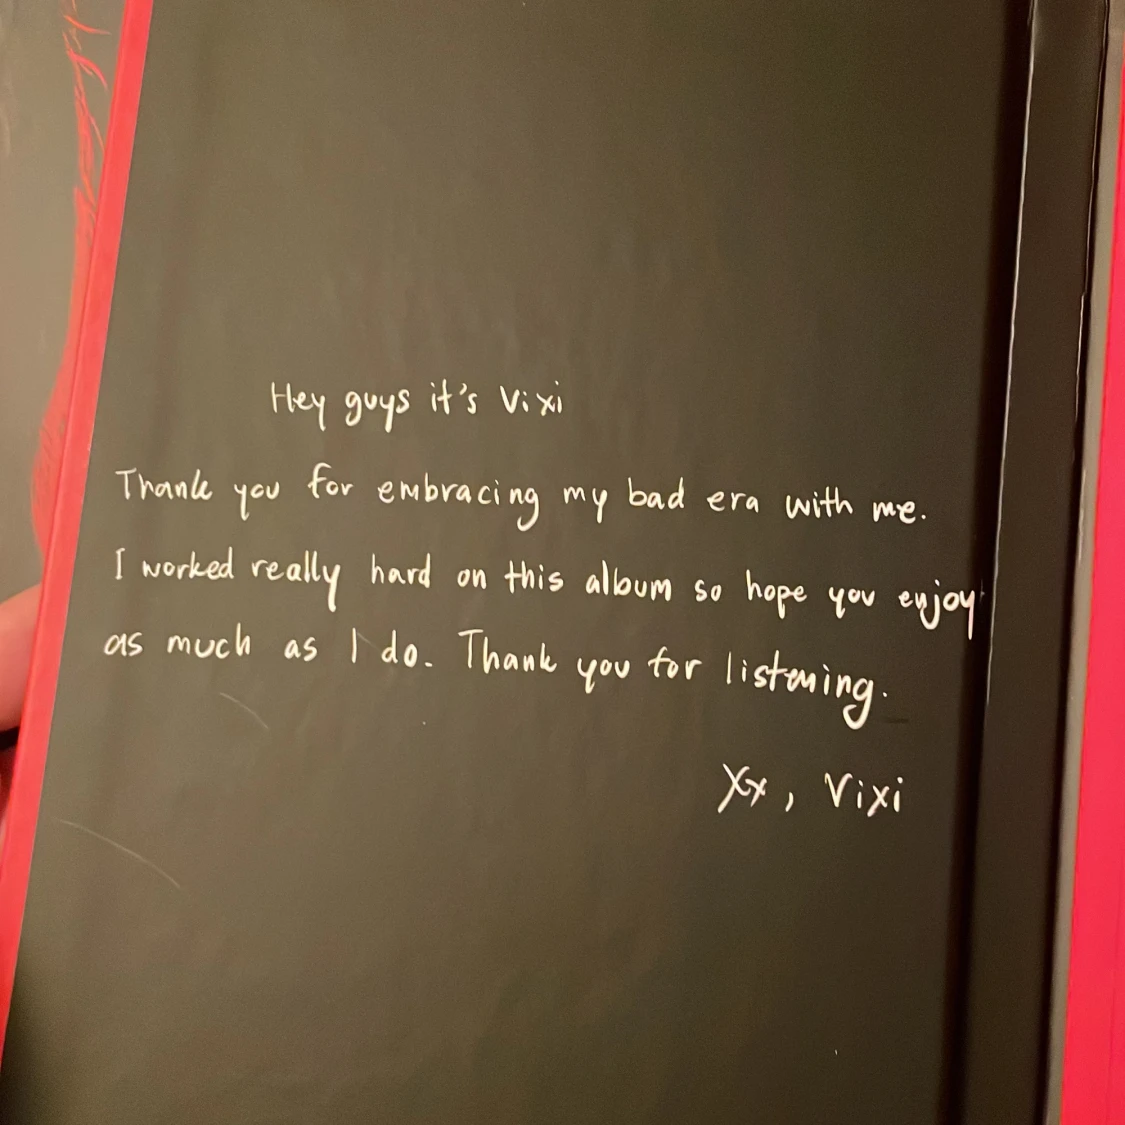 Hey guys it's Vixi
Thank you for embracing my bad era with me.
I worked really hard on this album so hope you enjoy
as much as I do. Thank you for listening.
Xx, Vixi